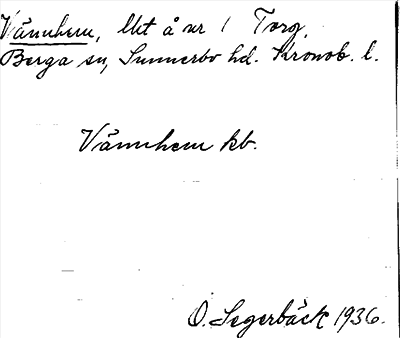 Vännhem, lht å nr 1 Torg,
Berga sn, Sunnerbo hd. Kronob. l.
Vännhem kb.
O. Segerbäck 1936.